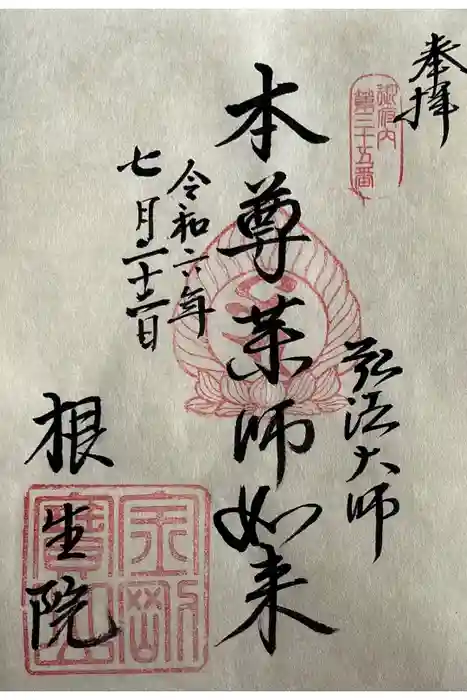 奉拝
御府内
第三十五番
弘法大師
本尊薬師如来
令和六年
七月二十二日
根生院
金剛
寶山